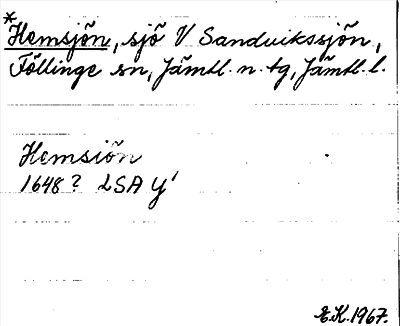 *Hemsjön, sjö V Sandvikssjön,
Föllinge sn, Jämtl. n. tg, Jämtl. l.
Hemsiön
1648? LSA Y¹
E.K. 1967.